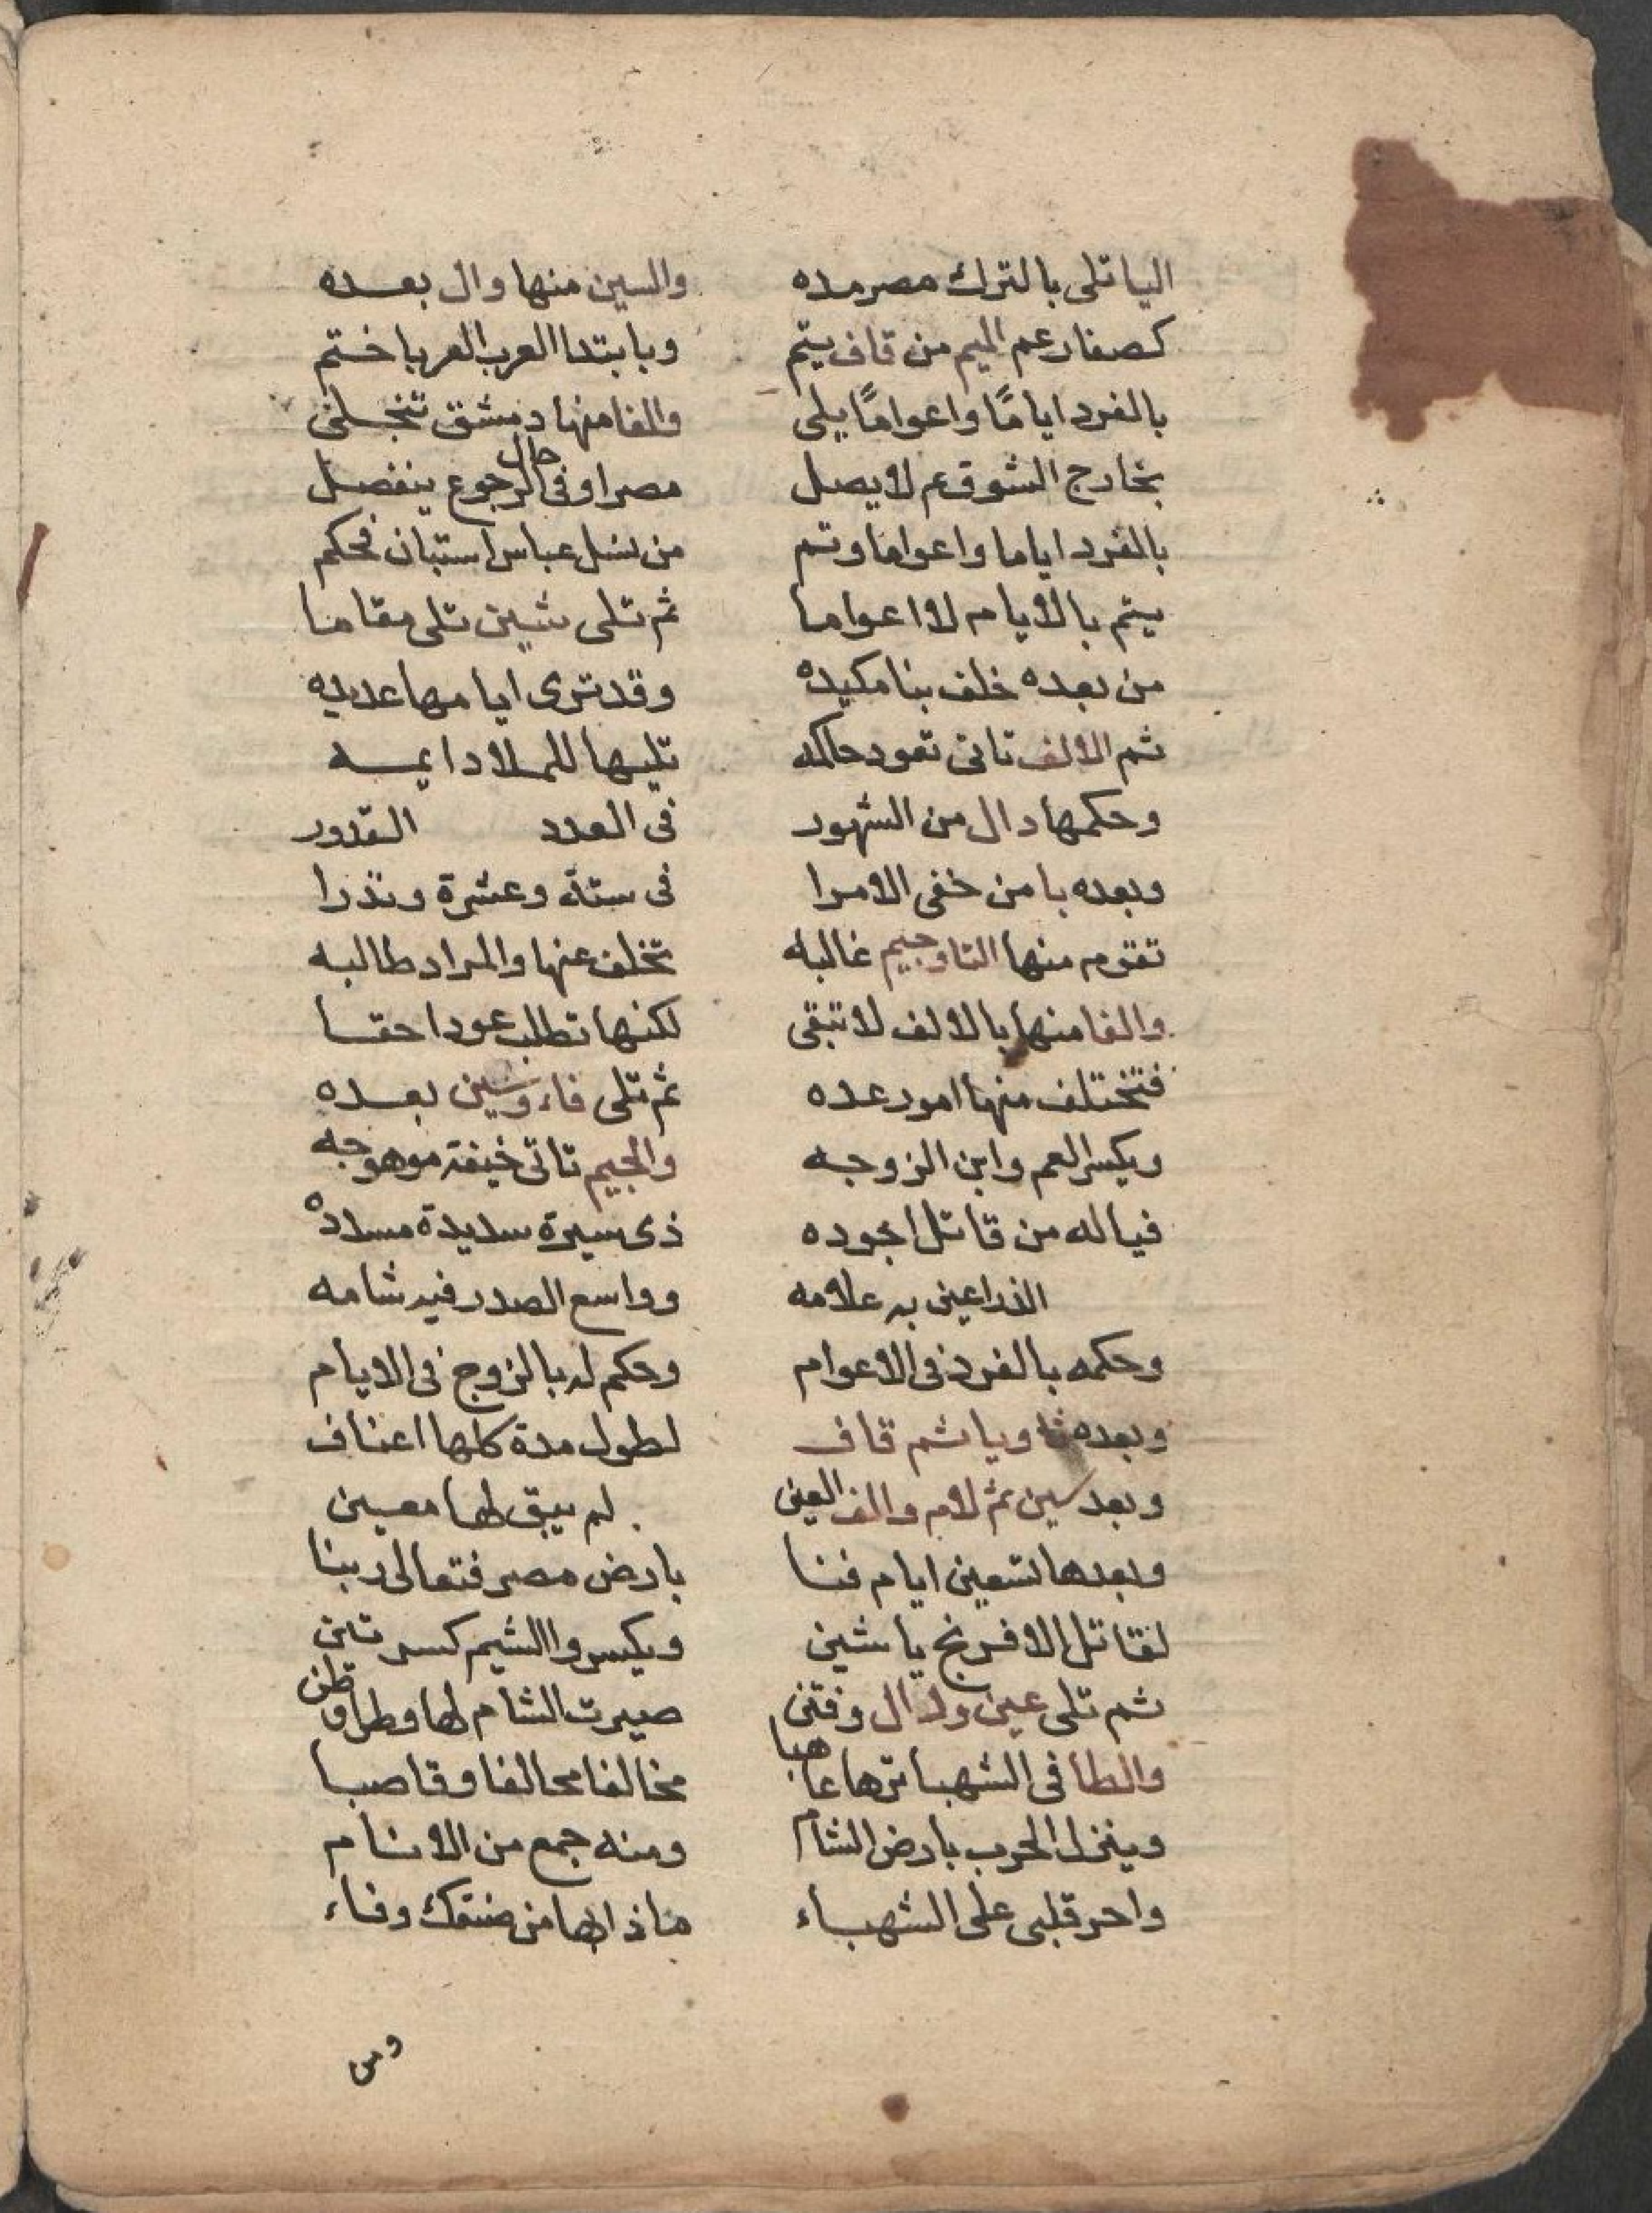 اليا تلى بالترك مصر مده والسين منها وال بعده
كصفار عم الميم من قاف يتم وبابتدا العرب العربا ختم
بالفرد اياماً واعواماً يلى والفا منها دمشق تنجلى
بخارج الشوق عم لا يصل مصرا وفى حال الرجوع ينفصل
بالفرد اياما واعواما وتم من نسل عباس استبان فحكم
يتم بالايام لا اعواما ثم تلى شين تلى مقاما
من بعده خلف بنا مكيده وقد ترى ايامها عديده
ثم الالف تانى تعود حاكمه تليها للملا دايمه
وحكمها دال من الشهور فى العدد القدور
وبعده با من خفى الامرا فى ستة وعشرة ونذرا
تقوم منها التا وجيم غالبه تخلف عنها والمراد طالبه
والفا منها بالالف لا تبقى لكنها تطلب عودا حقا
فتختلف منها امور عده ثم تلى فاء وسين بعده
ويكسر العم وابن الزوجه والجيم تاتى خيفة موهوجه
فياله من قاتل اجوده ذى سيرة سديدة مسدده
الذراعين به علامه وواسع الصدر فيه شامه
وحكمه بالفرد فى الاعوام وحكم له بالزوج فى الايام
وبعده ثا ويا ثم قاف لطول مدة كلها اعناف
وبعد سين ثم لام والف العين لم يبق لها معين
وبعدها تسعين ايام فنا بارض مصر فتعالى ربنا
لقاتل الافرنج يا شين ويكسروا الشيم كسرتين
ثم تلى عين ودال وفتن صيرت الشام لها وطراوطن
والطا فى الشهبا ترها عاهبا مخالفا محالفا وقاصبا
وينزل الحرب بارض الشام ومنه جمع من الانام
واحر قلبى على الشهباء ماذا لها من ضنتك وفناء
ومن